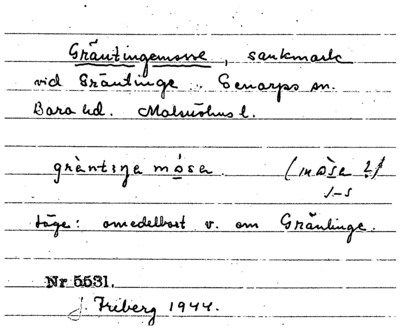 Gräntingemosse, sankmark
vid Gräntinge. Genarps sn.
Bara hd. Malmöhus l.
grὲntiŋa mósa. (mòsa ?)
s-s
Läge: omedelbart v. om Gräntinge.
Nr 5531.
J. Friberg 1944.